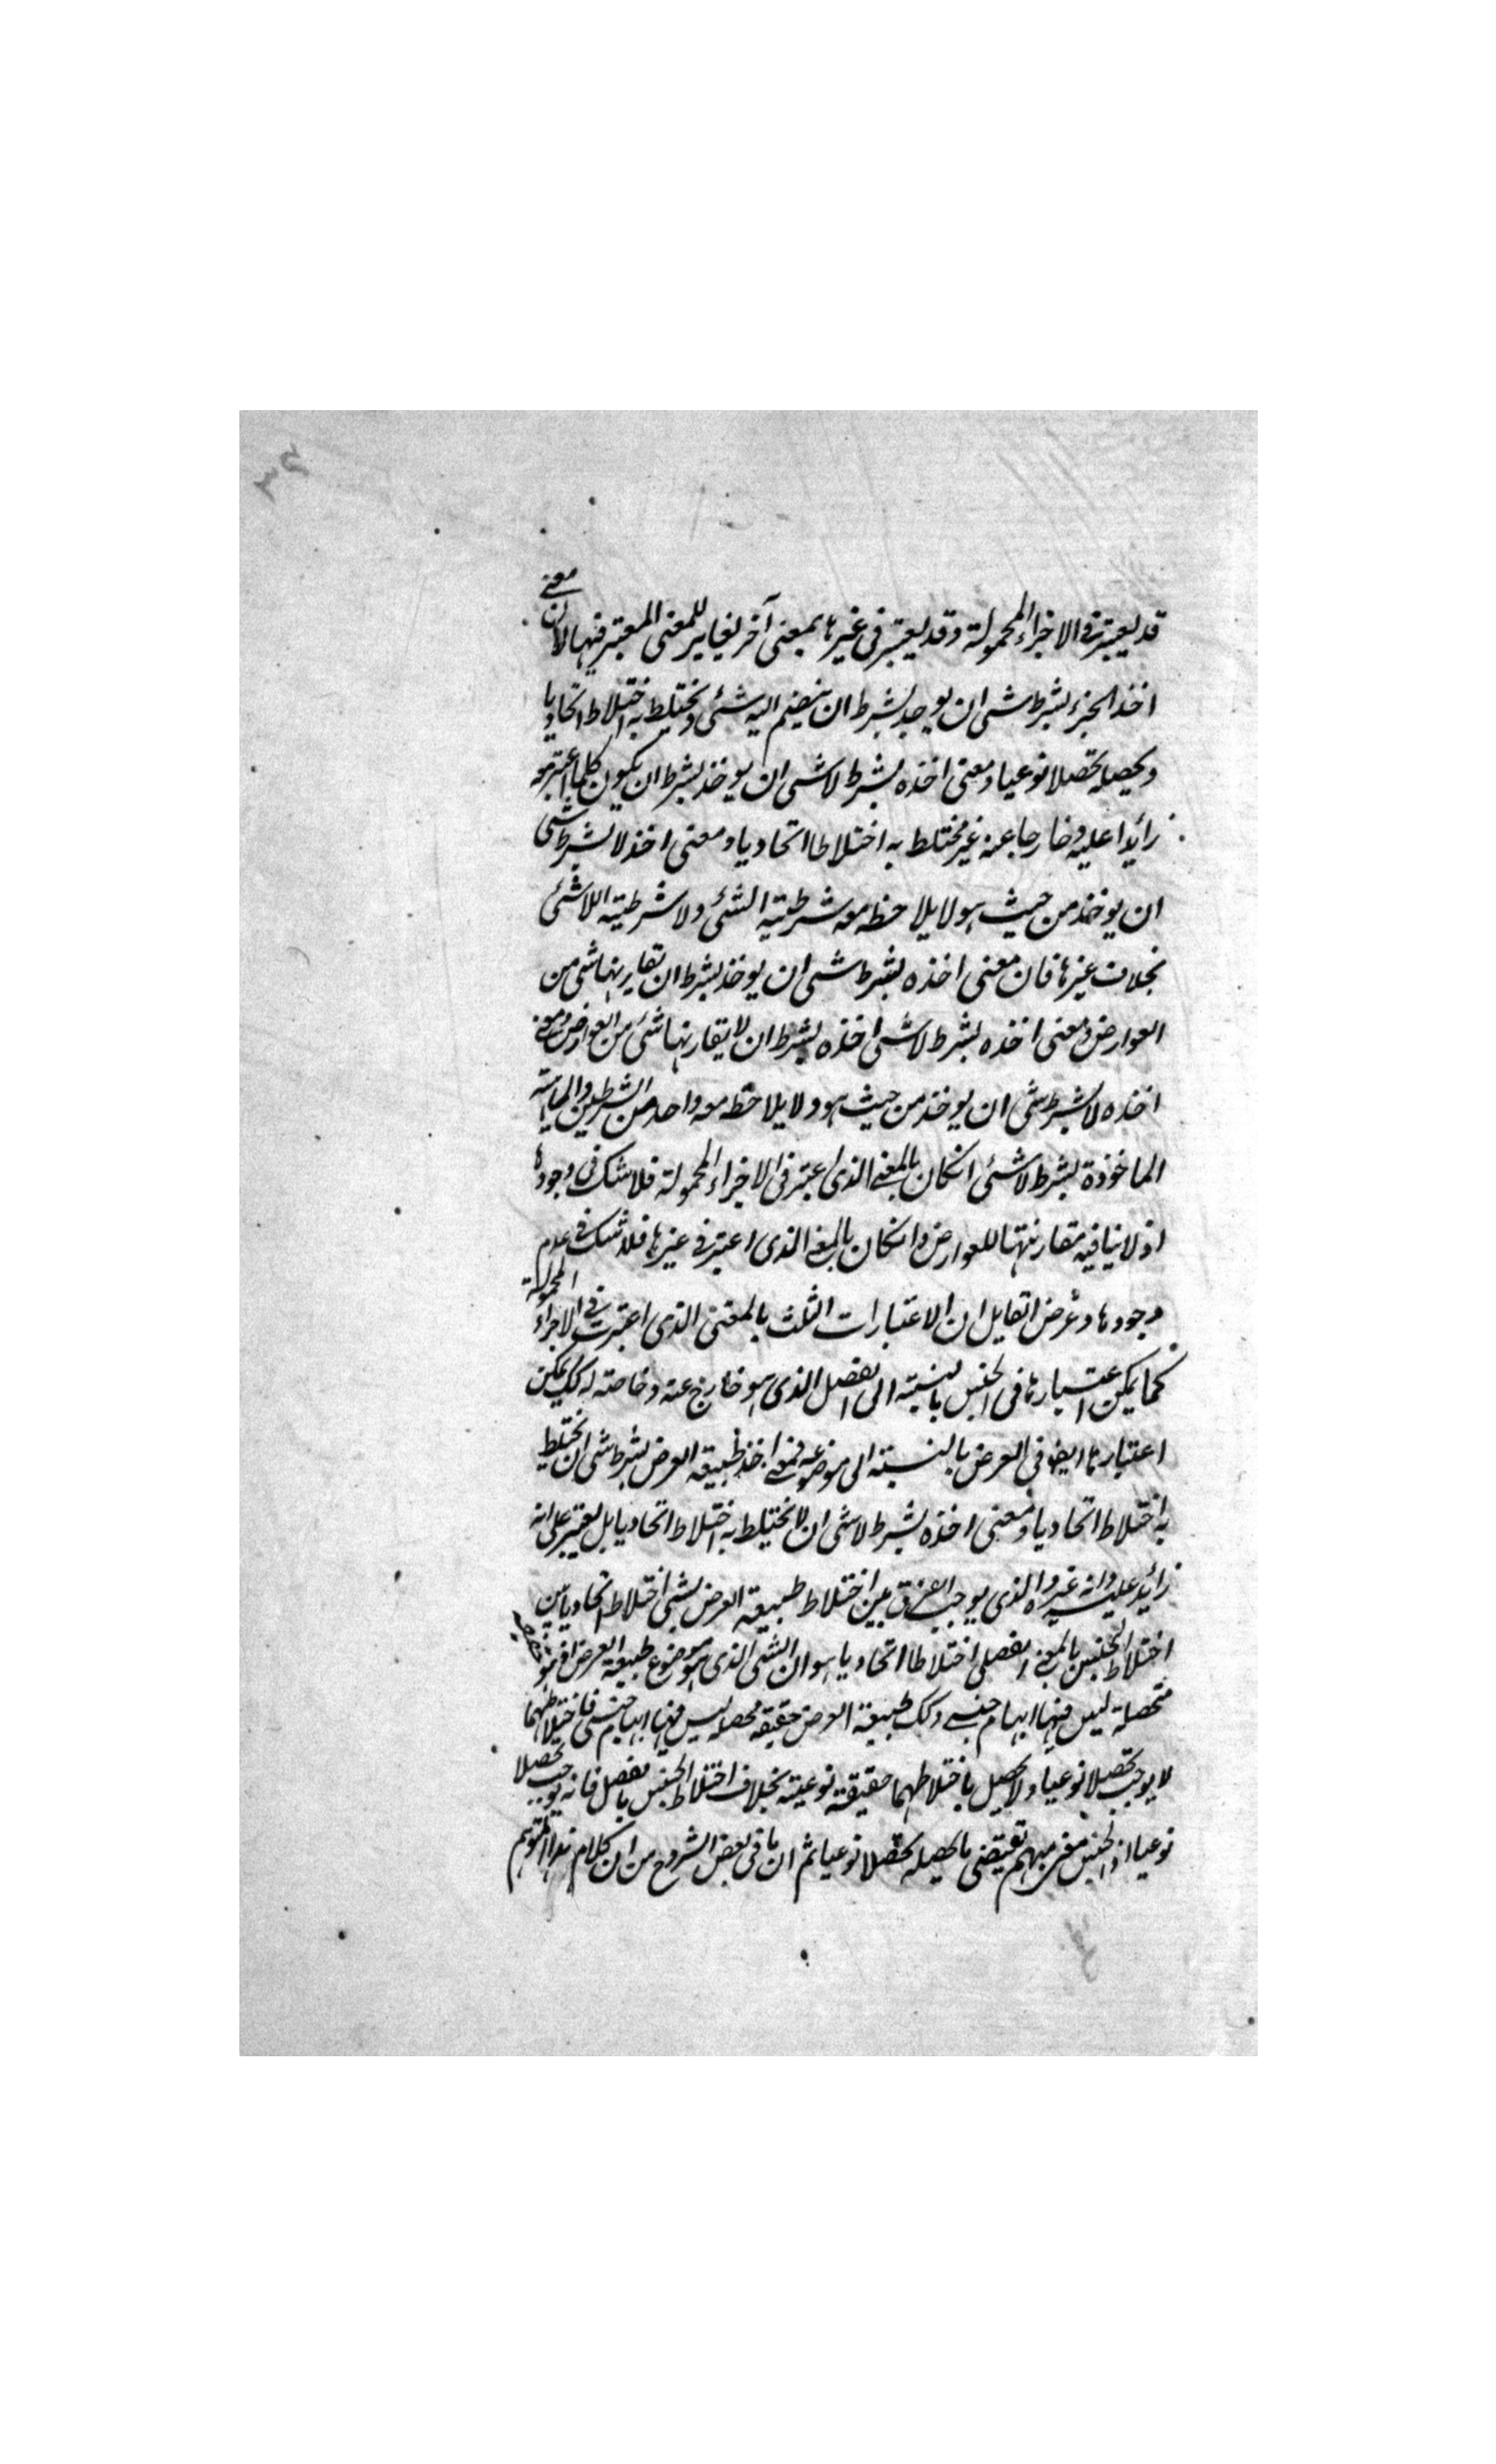 قد يعتبر فى الاجزاء المحمولة وقد يعتبر فى غيرها بمعنى آخر يغاير للمعنى المعتبر فيها لان معنى
اخذ الجزء بشرط شى ان يوجد بشرط ان ينضم اليه شئى ويختلط به اختلاطا اتحاديا
ويحصله تحصلا نوعيا ومعنى اخذه بشرط لا شى ان يوخذ بشرط ان يكون كلما اعتبر معه
زائدا عليه وخارجا عنه غير مختلط به اختلاطا اتحاديا ومعنى اخذ لا بشرط شى
ان يوخذ من حيث هو لا يلاحظه معه شرطية الشئى ولا شرطية اللاشئى
بخلاف غيرها فان معنى اخذه بشرط شى ان يوخذ بشرط ان تقارنها شى من
العوارض ومعنى اخذه بشرط لا شى اخذه بشرط ان لا يقارنها شئى من العوارض ومعنى
اخذه لا بشرط شى ان يوخذ من حيث هو ولا يلاحظه معه واحد من الشرطين والماهية
الماخوذة بشرط لا شئى انكان بالمعنى الذى اعتبر فى الاجزاء المحمولة فلا شك فى وجودها
اذ لا ينافيه مقارنتها للعوارض وانكان بالمعنى الذى اعتبر فى غيرها فلا شك فى عدم
وجودها وغرض القايل ان الاعتبارات الثلث بالمعنى الذى اعتبرت فى الاجزاء المحمولة
كما يمكن اعتبارها فى الجنس بالنسبة الى الفصل الذى هو خارج عنه وخاصته له كك يمكن
اعتبارها ايضا فى العرض بالنسبة الى موضوعه فمعنى اخذ طبيعة العرض بشرط شى ان يختلط
به اختلاطا اتحاديا ومعنى اخذه بشرط لا شى ان لا يختلط به اختلاطا اتحاديا بل يعتبر على انه
زائد عليه وانه غيره والذى يوجب الفرق بين اختلاط طبيعة العرض بشى اختلاطا اتحاديا بين
اختلاط الجنس بالمعنى الفصلى اختلاطا اتحاديا هو ان الشى الذى هو موضوع طبيعة العرض
متحصلة ليس فيها ابهام جنسى وكك طبيعة العرض حقيقة محصلة ليس فيها ابهام جنسى فاختلاطهما
لا يوجب تحصلا نوعيا ولا يحصل باختلاطهما حقيقة نوعية بخلاف اختلاط الجنس بالفصل فانه يوجب تحصلا
نوعيا اذ الجنس مبهم يقتضى ما يحصله تحصلا نوعيا ثم ان ما فى بعض الشروح من ان كلام هذا المتوهم